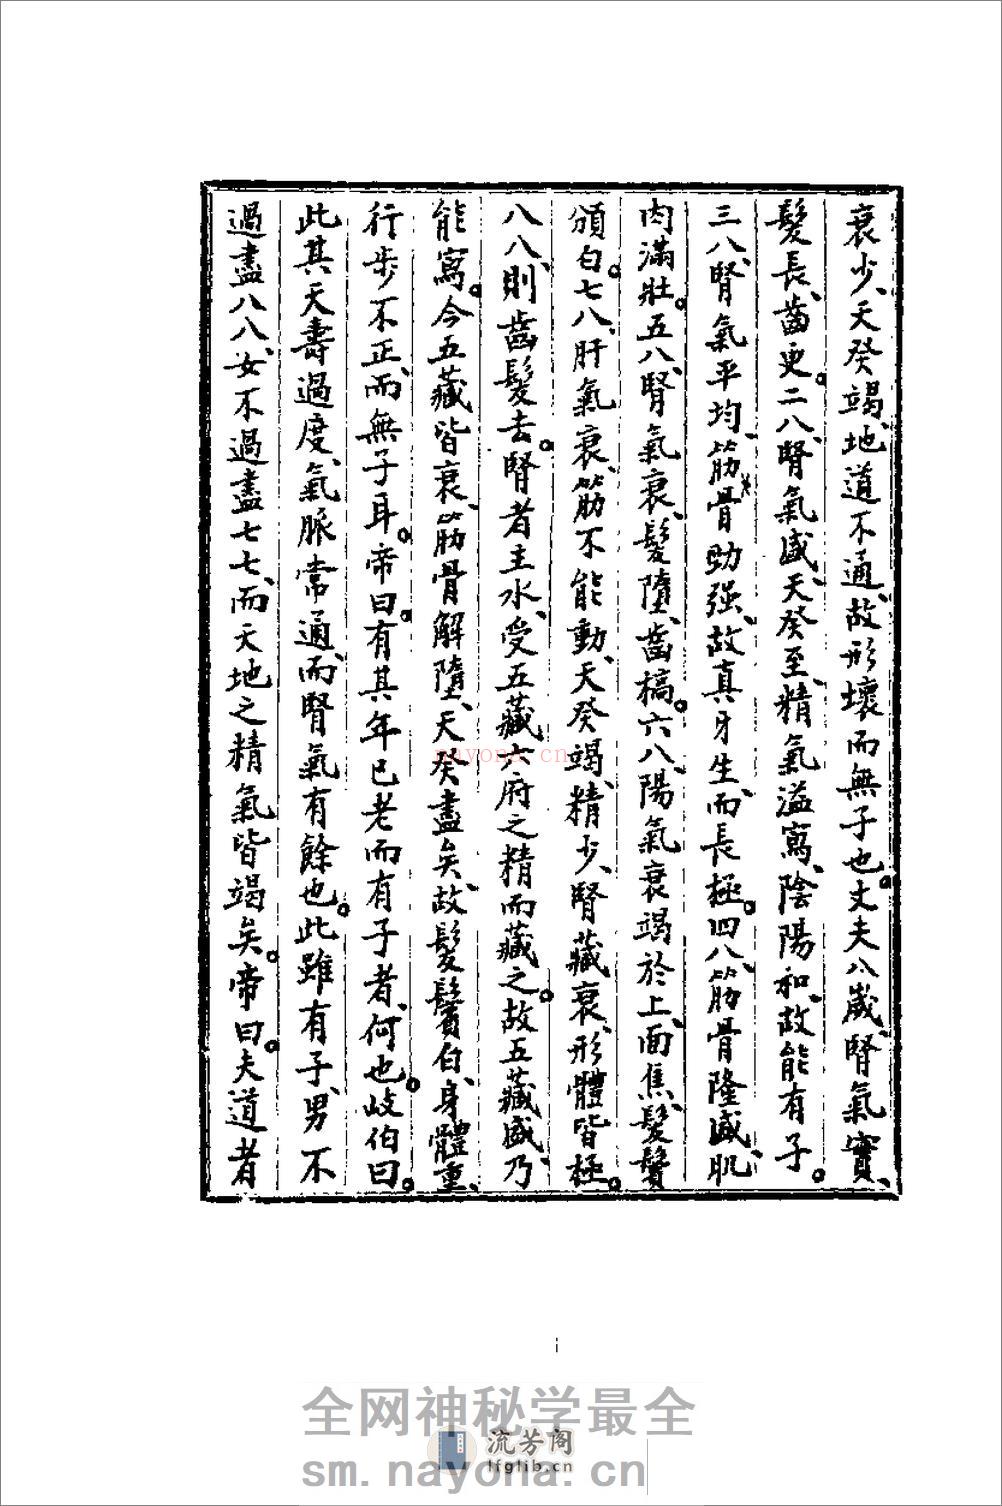 衰少、天癸竭、地道不通、故形壞而無子也。丈夫八歲、腎氣實、
髮長、齒更。二八、腎氣盛、天癸至、精氣溢寫、陰陽和、故能有子。
三八、腎氣平均、筋骨勁强、故真牙生而長極。四八、筋骨隆盛、肌
肉滿壯。五八、腎氣衰、髮墮、齒槁。六八、陽氣衰竭於上、面焦、髮鬢
頒白。七八、肝氣衰、筋不能動、天癸竭、精少、腎藏衰、形體皆極。
八八、則齒髮去。腎者主水、受五藏六府之精而藏之。故五藏盛、乃
能寫。今五藏皆衰、筋骨解墮、天癸盡矣、故髮鬢白、身體重、
行步不正、而無子耳。帝曰。有其年已老而有子者、何也。岐伯曰。
此其天壽過度、氣脈常通、而腎氣有餘也。此雖有子、男不
過盡八八、女不過盡七七、而天地之精氣皆竭矣。帝曰。夫道者
nayona.cn
i
全网神秘学最全
流芳阁
lfglib.cn
sm.nayona.cn